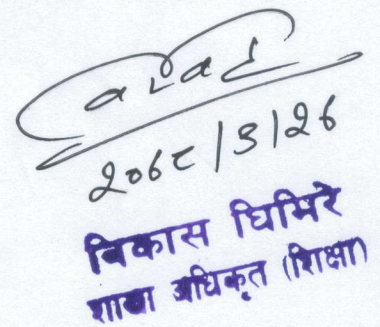 २०६८/३/२६
विकास घिमिरे
शाखा अधिकृत (शिक्षा)